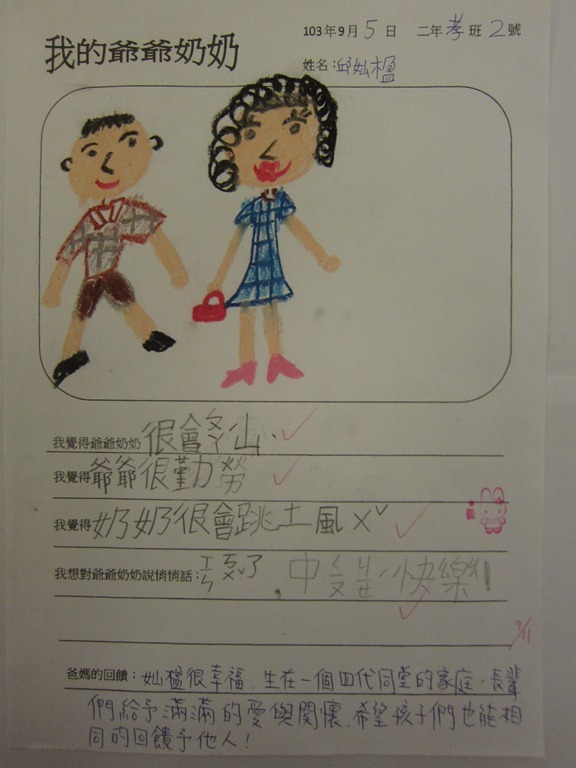 103年9月5日 二年孝班2號
我的爺爺奶奶
姓名:邱奾楹
我覺得爺爺奶奶很會山
我覺得爺爺很勤勞
我覺得奶奶很會跳土風ㄨˇ
我想對爺爺奶奶說悄悄話: ,中ㄑㄧㄡㄐㄧㄝˊ快樂
9/11
爸媽的回饋:奾楹很幸福,生在一個四代同堂的家庭,長輩
們給予滿滿的愛與關懷,希望孩子們也能相
同的回饋予他人!